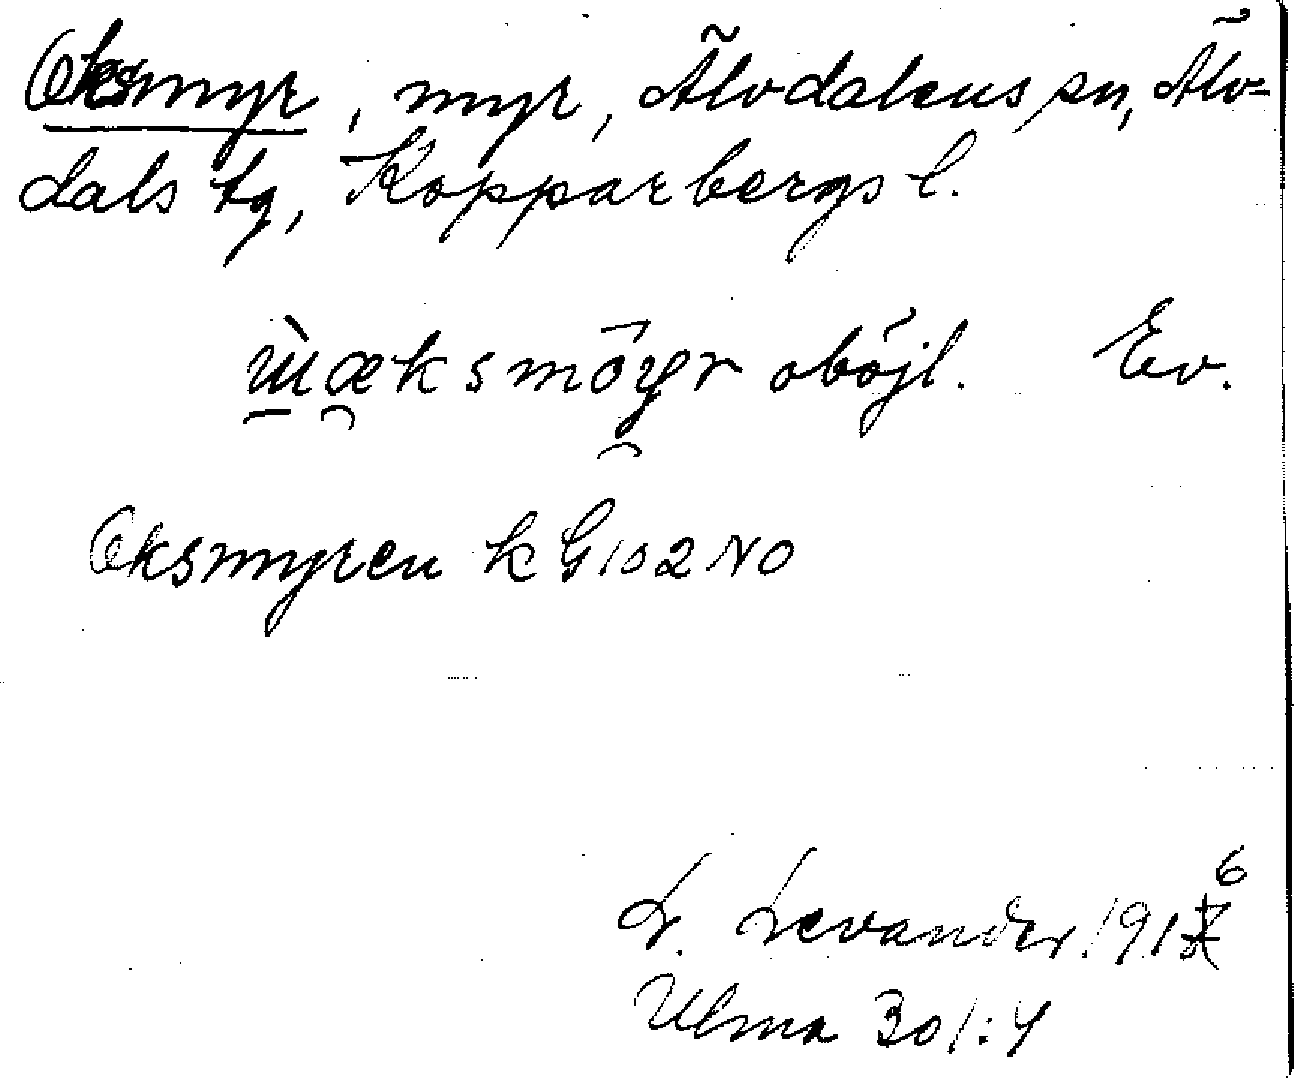 Oksmyr, myr, Älvdalens sn, Älv-
dals tg, Kopparbergs l.
ɯ̀æksmöyr oböjl. Ev.
Oksmyren k G 102 NO
L. Levander 1916
Ulma 301:4